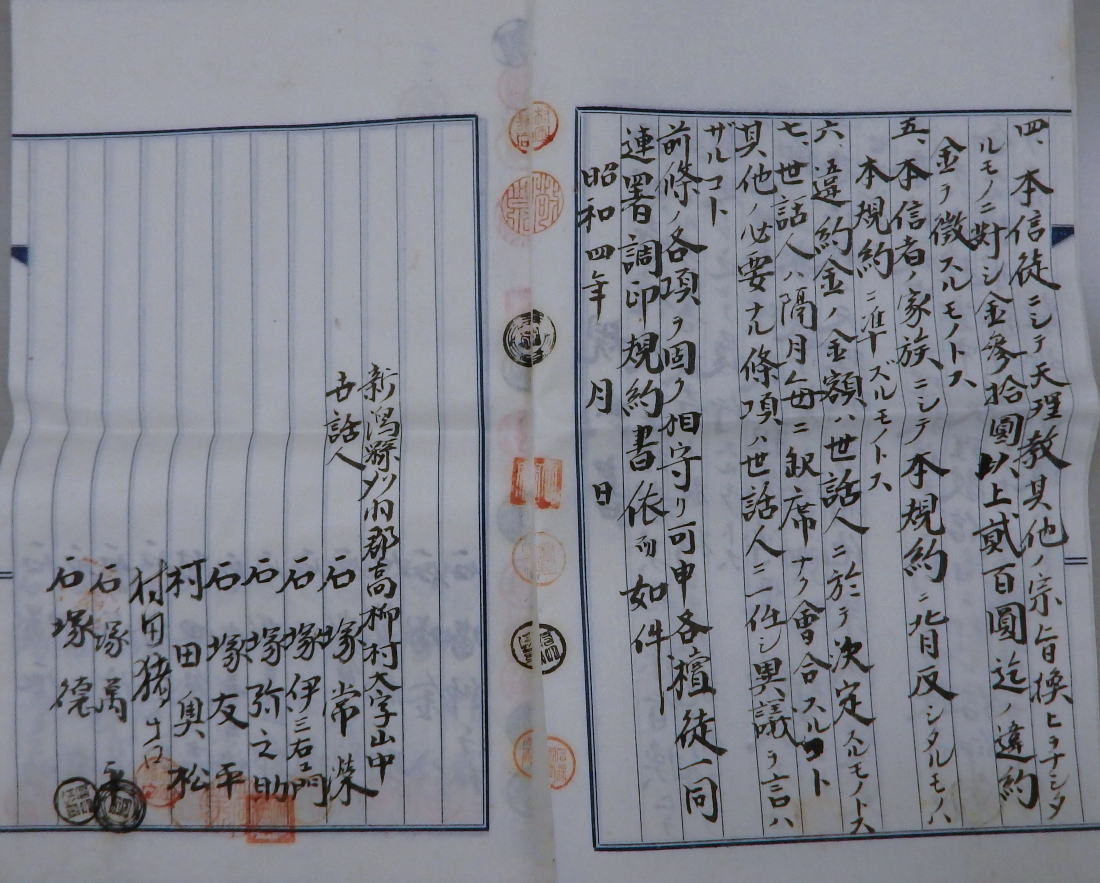 四、本信徒ニシテ天理教其他ノ宗旨換ヒヲナシタ
ルモノニ對シ金參拾圓以上貳百圓迄ノ違約
金ヲ徴スルモノトス
五、本信者ノ家族ニシテ本規約ニ背反シタルモノハ
本規約ニ準ズルモノトス
六、違約金ノ金額ハ世話人ニ於テ決定スルモノトス
七、世話人ハ隔月毎ニ缺席ナク會合スルコト
其他ノ必要ナル條項ハ世話人ニ一任シ異議ヲ言ハ
ザルコト
前條ノ各項ヲ固ク相守リ可申各檀徒一同
連署調印規約書依而如件
昭和四年 月 日
新潟縣刈羽郡高柳村大字山中
世話人
石塚常榮
石塚伊三右エ門
石塚弥之助
石塚友平
村田奥松
村田猪
石塚萬
石塚德